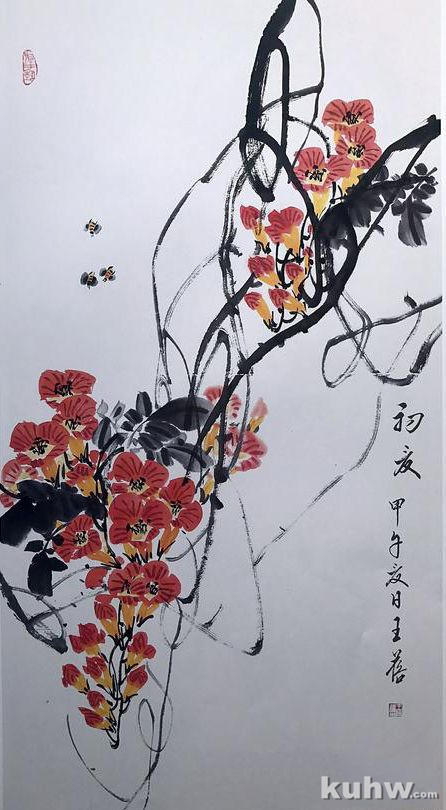 初夏
甲午夏日王
kuhw.com